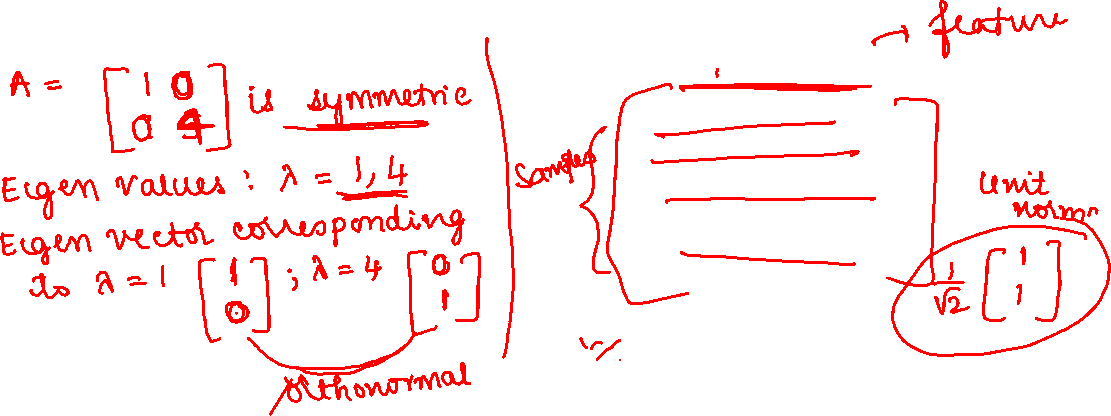 A = [1 0
0 4] is symmetric
Eigen values: λ = 1, 4
Eigen vector corresponding
to λ = 1 [1
0] ; λ = 4 [0
1]
Orthonormal
→ feature
Samples
Unit
norm
1/√2 [1
1]